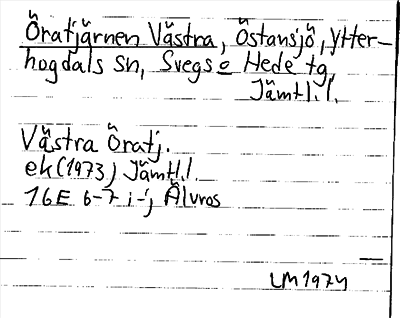 Öratjärnen Västra, Östansjö, Ytter-
hogdals sn, Svegs o Hede tg,
Jämtl.l.
Västra Öratj.
ek (1973) Jämtl.l.
16E 6-7 i-j Älvros
LM 1974